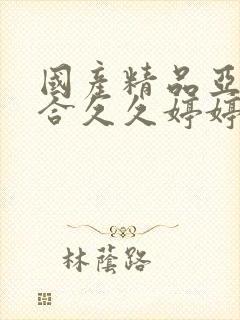 國產精品亞
合久久婷婷
林蔭路